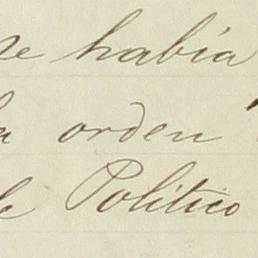 se había
la orden
de Politico